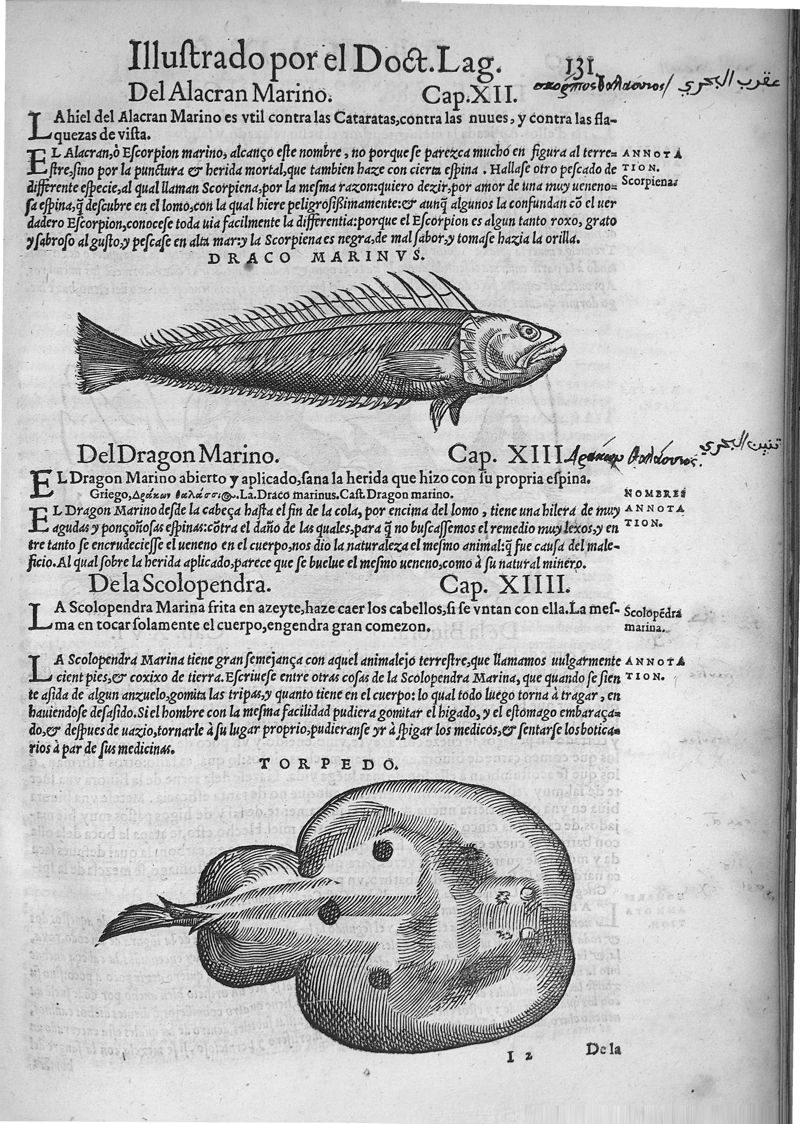 Illustrado por el Doct. Lag. 131
Del Alacran Marino. Cap. XII. σκορπίος θαλάσσιος / عقرب البحري
LA hiel del Alacran Marino es vtil contra las Cataratas, contra las nuues, y contra las fla-
quezas de vista.
EL Alacran, ò Escorpion marino, alcançò este nombre, no porque se parezca mucho en figura al terre= ANNOTA
stre, sino por la punctura & herida mortal, que tambien haze con cierta espina. Hallase otro pescado de TION.
differente especie, al qual llaman Scorpiena, por la mesma razon: quiero dezir, por amor de una muy ueneno= Scorpiena.
sa espina, q̃ descubre en el lomo, con la qual hiere peligrosissimamente: & aunq̃ algunos la confundan cõ el uer
dadero Escorpion, conocese toda uia facilmente la differentia: porque el Escorpion es algun tanto roxo, grato
y sabroso al gusto, y pescase en alta mar: y la Scorpiena es negra, de mal sabor, y tomase hazia la orilla.
DRACO MARINVS.
Del Dragon Marino. Cap. XIII. Δράκων θαλάσσιος. تنين البحري
EL Dragon Marino abierto y aplicado, sana la herida que hizo con su propria espina.
Griego, Δράκων θαλάσσιος. La. Draco marinus. Cast. Dragon marino. NOMBRES
EL Dragon Marino desde la cabeça hasta el fin de la cola, por encima del lomo, tiene una hilera de muy ANNOTA
agudas y ponçoñosas espinas: cõtra el daño de las quales, para q̃ no buscassemos el remedio muy lexos, y en TION.
tre tanto se encrudeciesse el ueneno en el cuerpo, nos dio la naturaleza el mesmo animal: q̃ fue causa del male=
ficio. Al qual sobre la herida aplicado, parece que se buelue el mesmo ueneno, como à su natural minero.
De la Scolopendra. Cap. XIIII.
LA Scolopendra Marina frita en azeyte, haze caer los cabellos, si se vntan con ella. La mes- Scolopẽdra
ma en tocar solamente el cuerpo, engendra gran comezon. marina.
LA Scolopendra Marina tiene gran semejança con aquel animalejo terrestre, que llamamos uulgarmente ANNOTA
cient pies, & coxixo de tierra. Escriuese entre otras cosas de la Scolopendra Marina, que quando se sien TION.
te asida de algun anzuelo, gomita las tripas, y quanto tiene en el cuerpo: lo qual todo luego torna à tragar, en
hauiendose desasido. Si el hombre con la mesma facilidad pudiera gomitar el higado, y el estomago embaraça=
do, & despues de uazio, tornarle à su lugar proprio, pudieranse yr à spigar los medicos, & sentarse los botica=
rios à par de sus medicinas.
TORPEDO.
I 2 De la